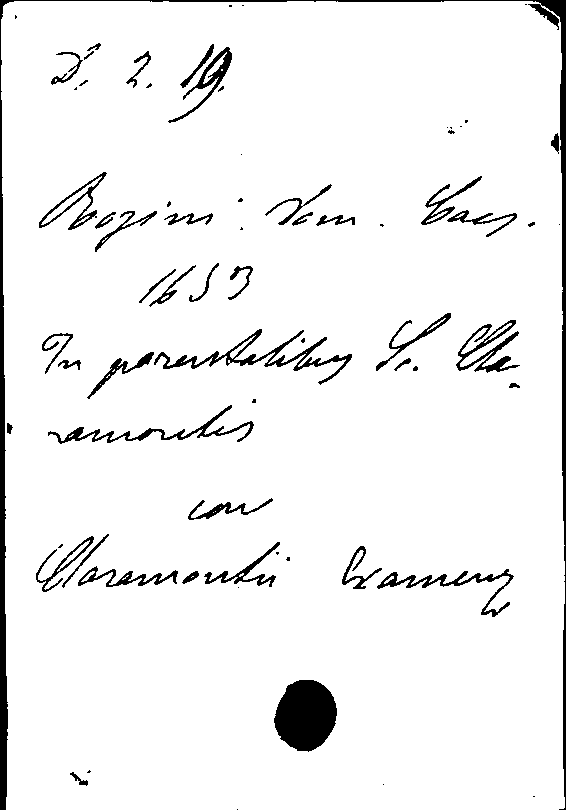 D. 2. 19.
Rogini Dom. Caes.
1653
In parentalibus S. Cla-
ramontis
con
Claramontii Examen